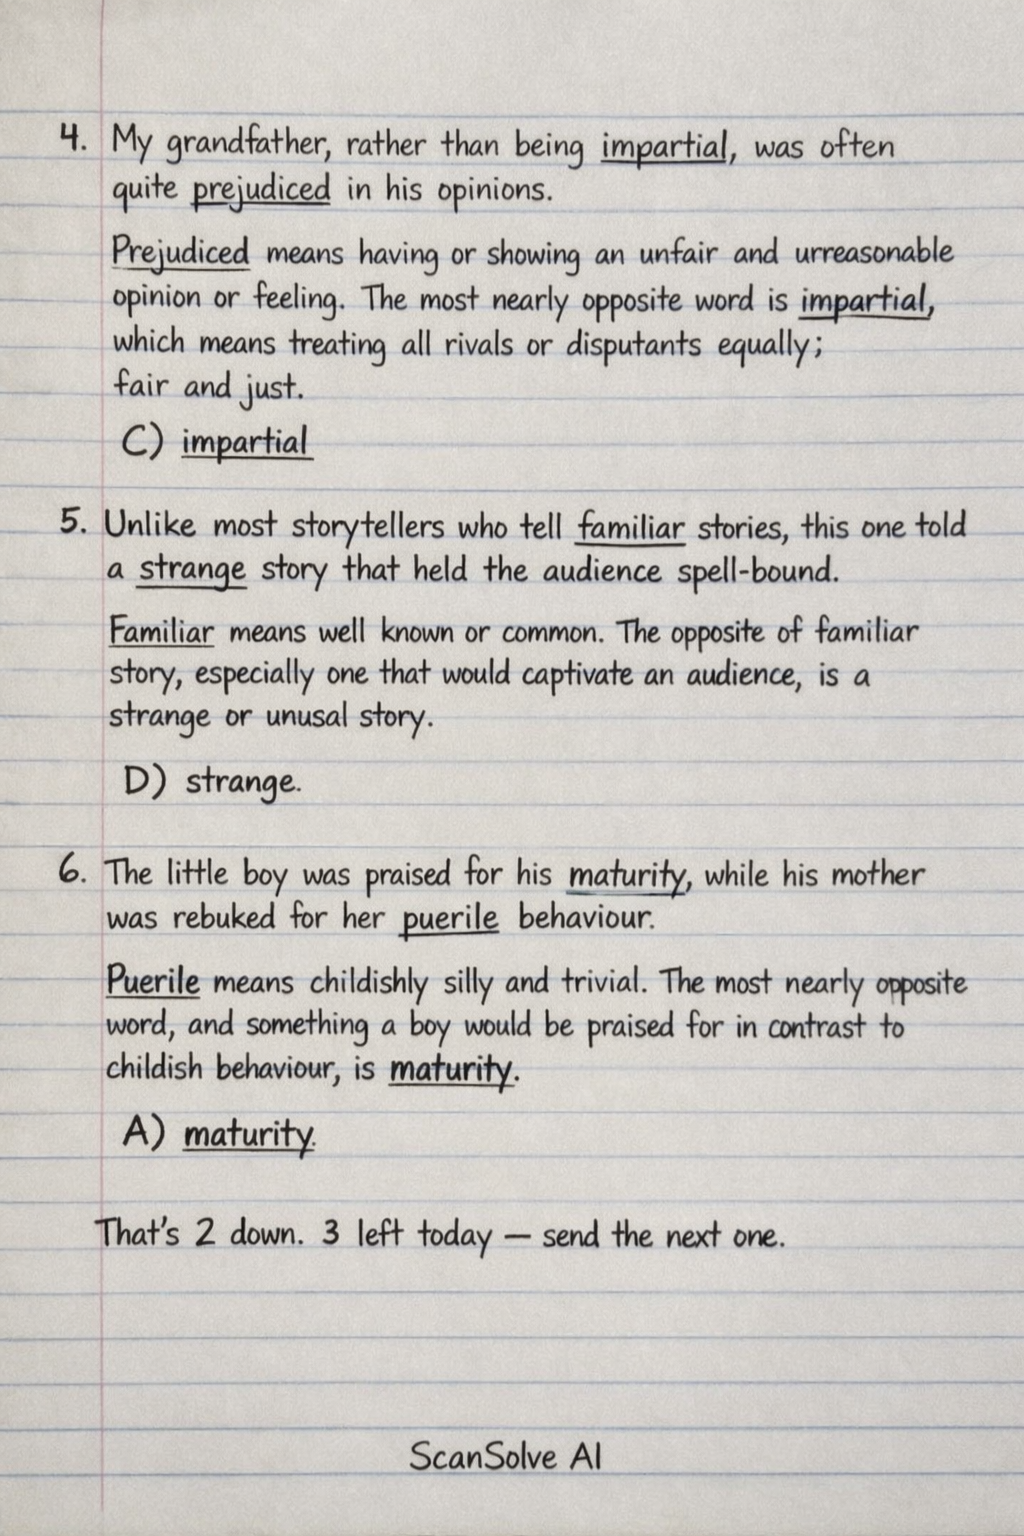 4. My grandfather, rather than being impartial, was often
quite prejudiced in his opinions.
Prejudiced means having or showing an unfair and urreasonable
opinion or feeling. The most nearly opposite word is impartial,
which means treating all rivals or disputants equally;
fair and just.
C) impartial
5. Unlike most storytellers who tell familiar stories, this one told
a strange story that held the audience spell-bound.
Familiar means well known or common. The opposite of familiar
story, especially one that would captivate an audience, is a
strange or unusal story.
D) strange.
6. The little boy was praised for his maturity, while his mother
was rebuked for her puerile behaviour.
Puerile means childishly silly and trivial. The most nearly opposite
word, and something a boy would be praised for in contrast to
childish behaviour, is maturity.
A) maturity.
That's 2 down. 3 left today — send the next one.
ScanSolve AI